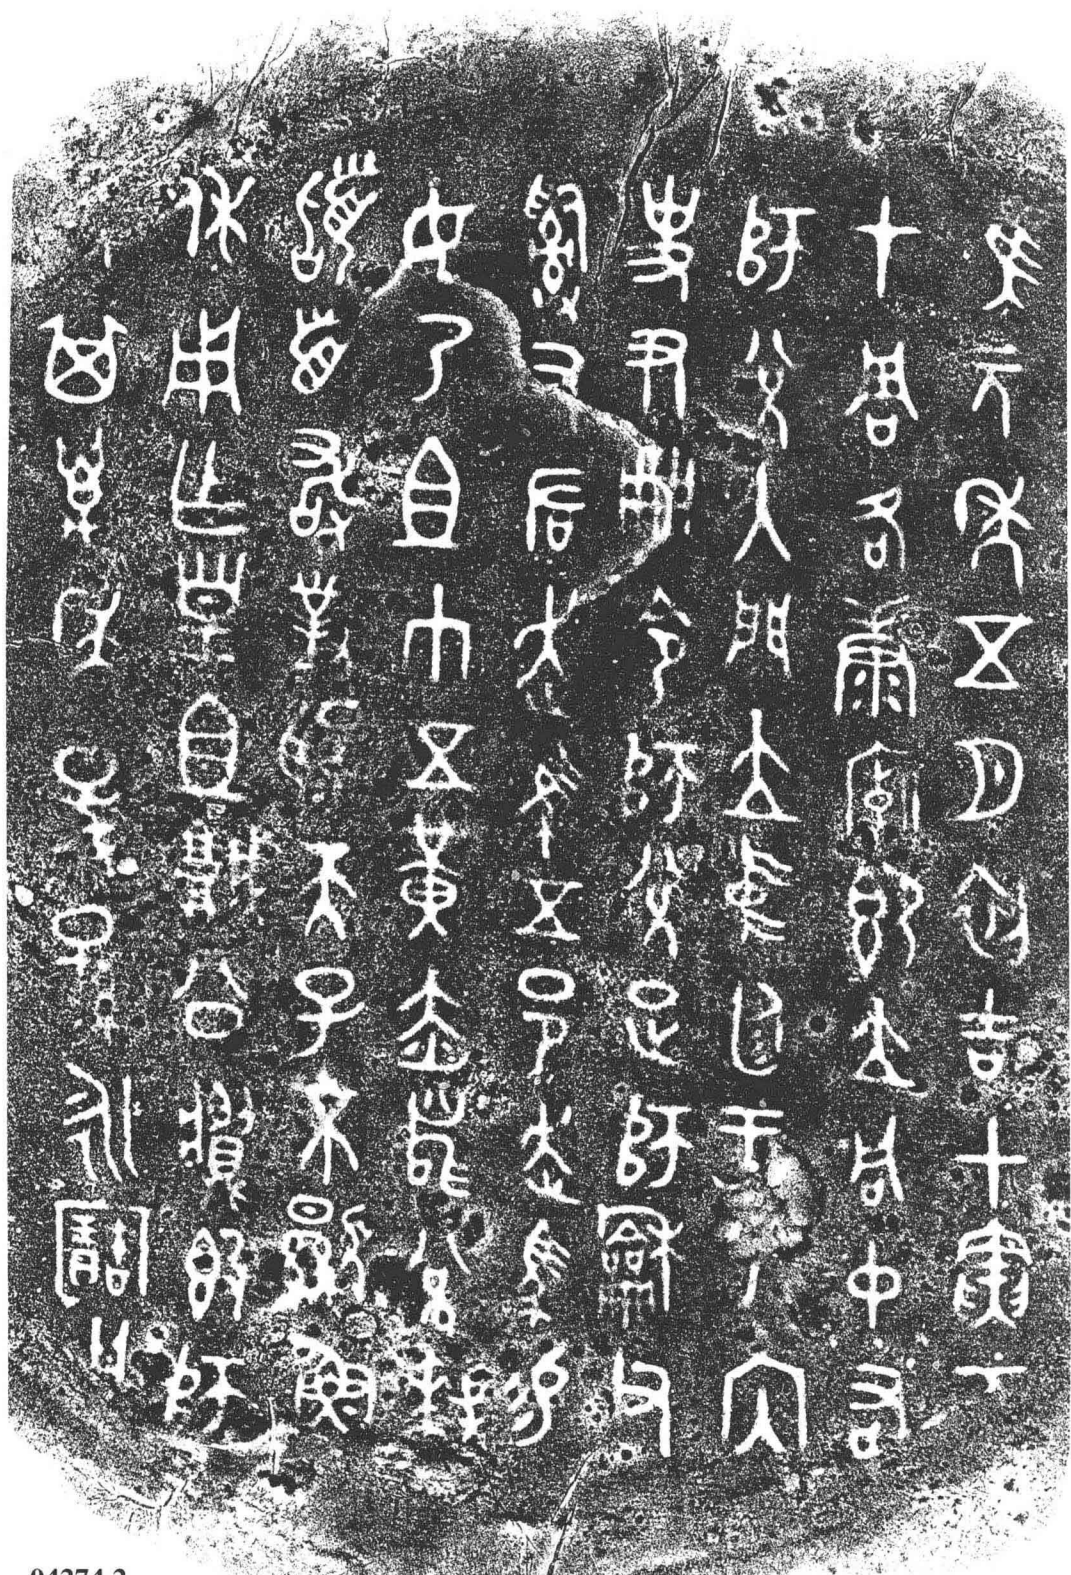 隹元年五月初吉甲寅王
才周各康廟即立同中右
師兌入門立中廷王乎內
史尹冊令師兌疋師龢父
𤔲左右走馬五邑走馬易
女乃且巾五黃赤舄兌拜
𩒨首敢對揚天子不顯魯
休用乍皇且城公𪔉簋師
兌其萬年子子孫孫永寶用